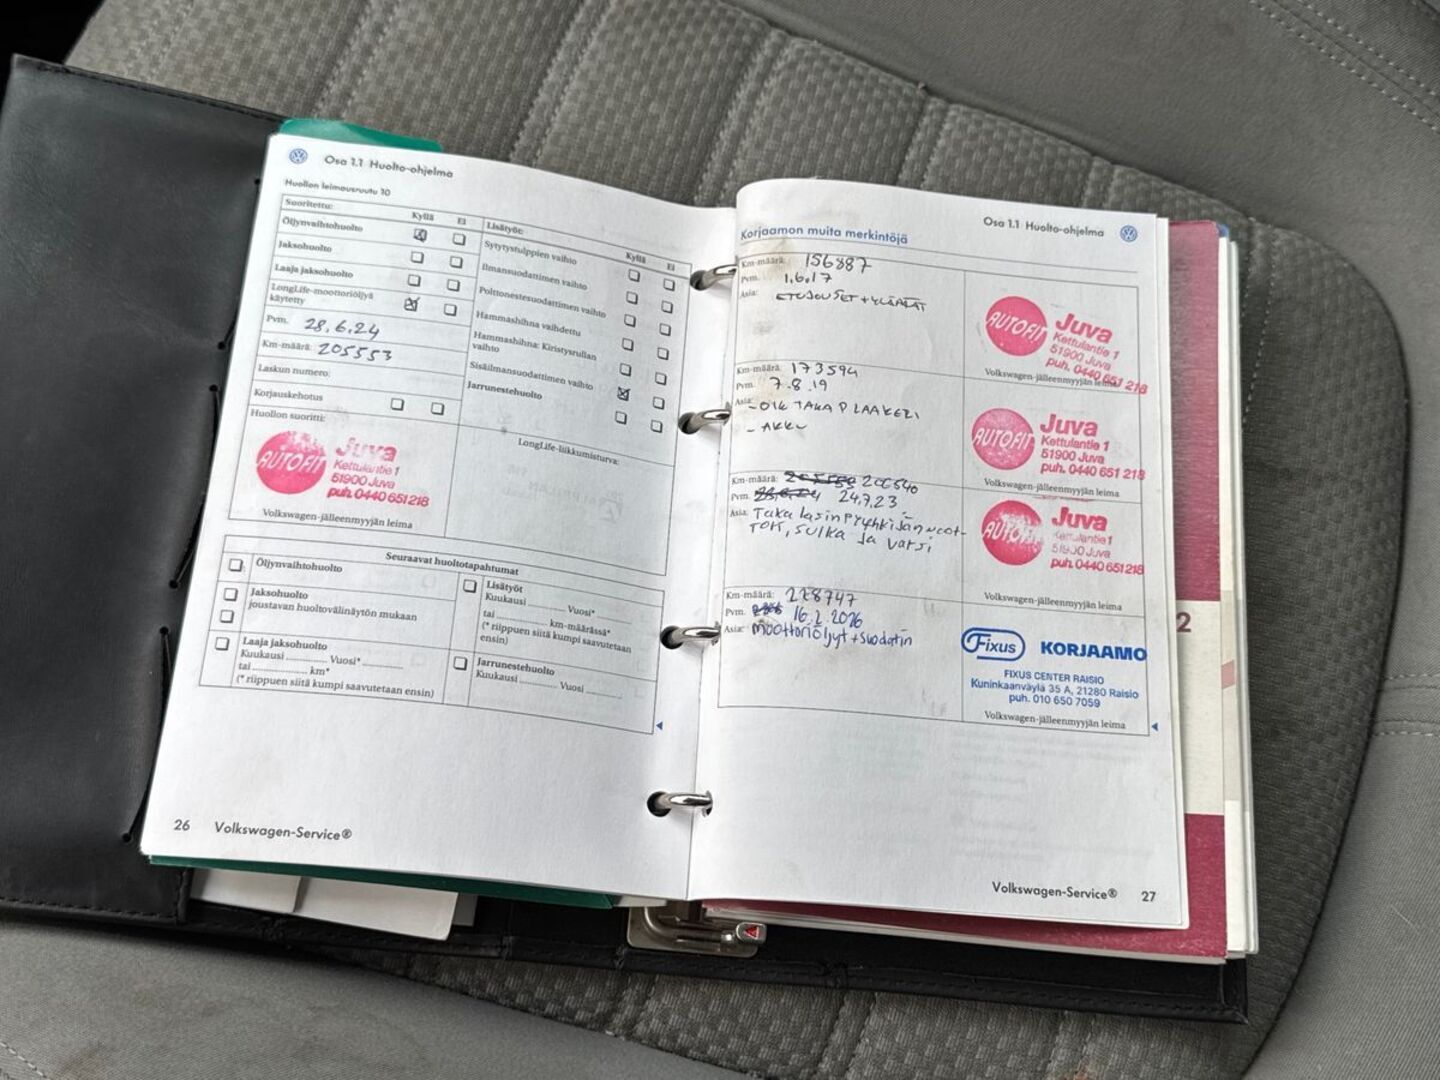 Osa 1.1 Huolto-ohjelma
Huollon leimausruutu 10
Suoritettu: Kyllä Ei
Öljynvaihtohuolto
Jaksohuolto
Laaja jaksohuolto
LongLife-moottoriöljyä
käytetty
Pvm. 28.6.24
Km-määrä: 205553
Laskun numero:
Korjauskehotus
Huollon suoritti:
AUTOFIT Juva
Kettulantie 1
51900 Juva
puh. 0440 651 218
Volkswagen-jälleenmyyjän leima
Lisätyöt: Kyllä Ei
Sytytystulppien vaihto
Ilmansuodattimen vaihto
Polttonestesuodattimen vaihto
Hammashihna vaihdettu
Hammashihna: Kiristysrullan
vaihto
Sisäilmansuodattimen vaihto
Jarrunestehuolto
LongLife-liikkumisturva:
Seuraavat huoltotapahtumat
Öljynvaihtohuolto
Jaksohuolto
joustavan huoltovälinäytön mukaan
Laaja jaksohuolto
Kuukausi ............ Vuosi* ............
tai ............ km*
(* riippuen siitä kumpi saavutetaan ensin)
Lisätyöt
Kuukausi ............ Vuosi*
tai ............ km-määrässä*
(* riippuen siitä kumpi saavutetaan
ensin)
Jarrunestehuolto
Kuukausi ............ Vuosi ............
26 Volkswagen-Service®
Osa 1.1 Huolto-ohjelma
Korjaamon muita merkintöjä
Km-määrä: 156887
Pvm. 1.6.17
Asia: ETUJOUSET + YLÄPÄÄT
AUTOFIT Juva
Kettulantie 1
51900 Juva
puh. 0440 651 218
Volkswagen-jälleenmyyjän leima
Km-määrä: 173594
Pvm. 7.8.19
Asia: - OIK TAKA PLAAKERI
- AKKU
AUTOFIT Juva
Kettulantie 1
51900 Juva
puh. 0440 651 218
Volkswagen-jälleenmyyjän leima
Km-määrä: 206540
Pvm. 24.7.23
Asia: Takalasinpyyhkijän moot-
TORI, SULKA Ja varsi
AUTOFIT Juva
Kettulantie 1
51900 Juva
puh. 0440 651 218
Volkswagen-jälleenmyyjän leima
Km-määrä: 228747
Pvm. 16.2.2026
Asia: Moottoriöljyt + suodatin
Fixus KORJAAMO
FIXUS CENTER RAISIO
Kuninkaanväylä 35 A, 21280 Raisio
puh. 010 650 7059
Volkswagen-jälleenmyyjän leima
Volkswagen-Service® 27
2